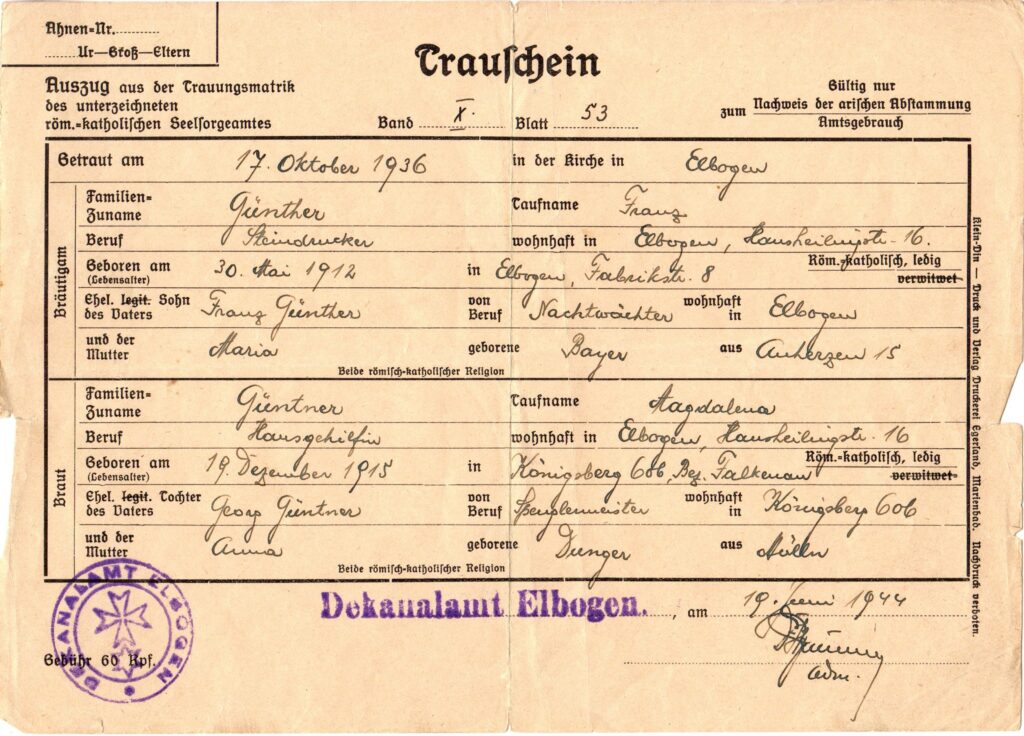 Ahnen=Nr.
Ur—Groß—Eltern
Trauschein
Auszug aus der Trauungsmatrik
des unterzeichneten
röm.-katholischen Seelsorgeamtes
Band X. Blatt 53
Gültig nur
zum Nachweis der arischen Abstammung
Amtsgebrauch
Getraut am 17. Oktober 1936 in der Kirche in Elbogen
Bräutigam
Familien=
Zuname Günther Taufname Franz
Beruf Steindrucker wohnhaft in Elbogen, Hansheilingstr. 16.
Geboren am 30. Mai 1912 in Elbogen, Fabrikstr. 8 Röm.-katholisch, ledig
(Lebensalter) verwitwet
Ehel. legit. Sohn von wohnhaft
des Vaters Franz Günther Beruf Nachtwächter in Elbogen
und der
Mutter Maria geborene Bayer aus 15
Beide römisch-katholischer Religion
Braut
Familien=
Zuname Güntner Taufname Magdalena
Beruf Hausgehilfin wohnhaft in Elbogen, Hansheilingstr. 16
Geboren am 19. Dezember 1915 in Königsberg 606, Bez. Falkenau Röm.-katholisch, ledig
(Lebensalter) verwitwet
Ehel. legit. Tochter von wohnhaft
des Vaters Georg Güntner Beruf Spenglermeister in Königsberg 606
und der
Mutter Anna geborene Dunger aus
Beide römisch-katholischer Religion
Klein-Din — Druck und Verlag Druckerei Egerland, Marienbad. Nachdruck verboten.
DEKANALAMT ELBOGEN
Dekanalamt Elbogen. , am 19. Juni 1944
adm.
Gebühr 60 Rpf.